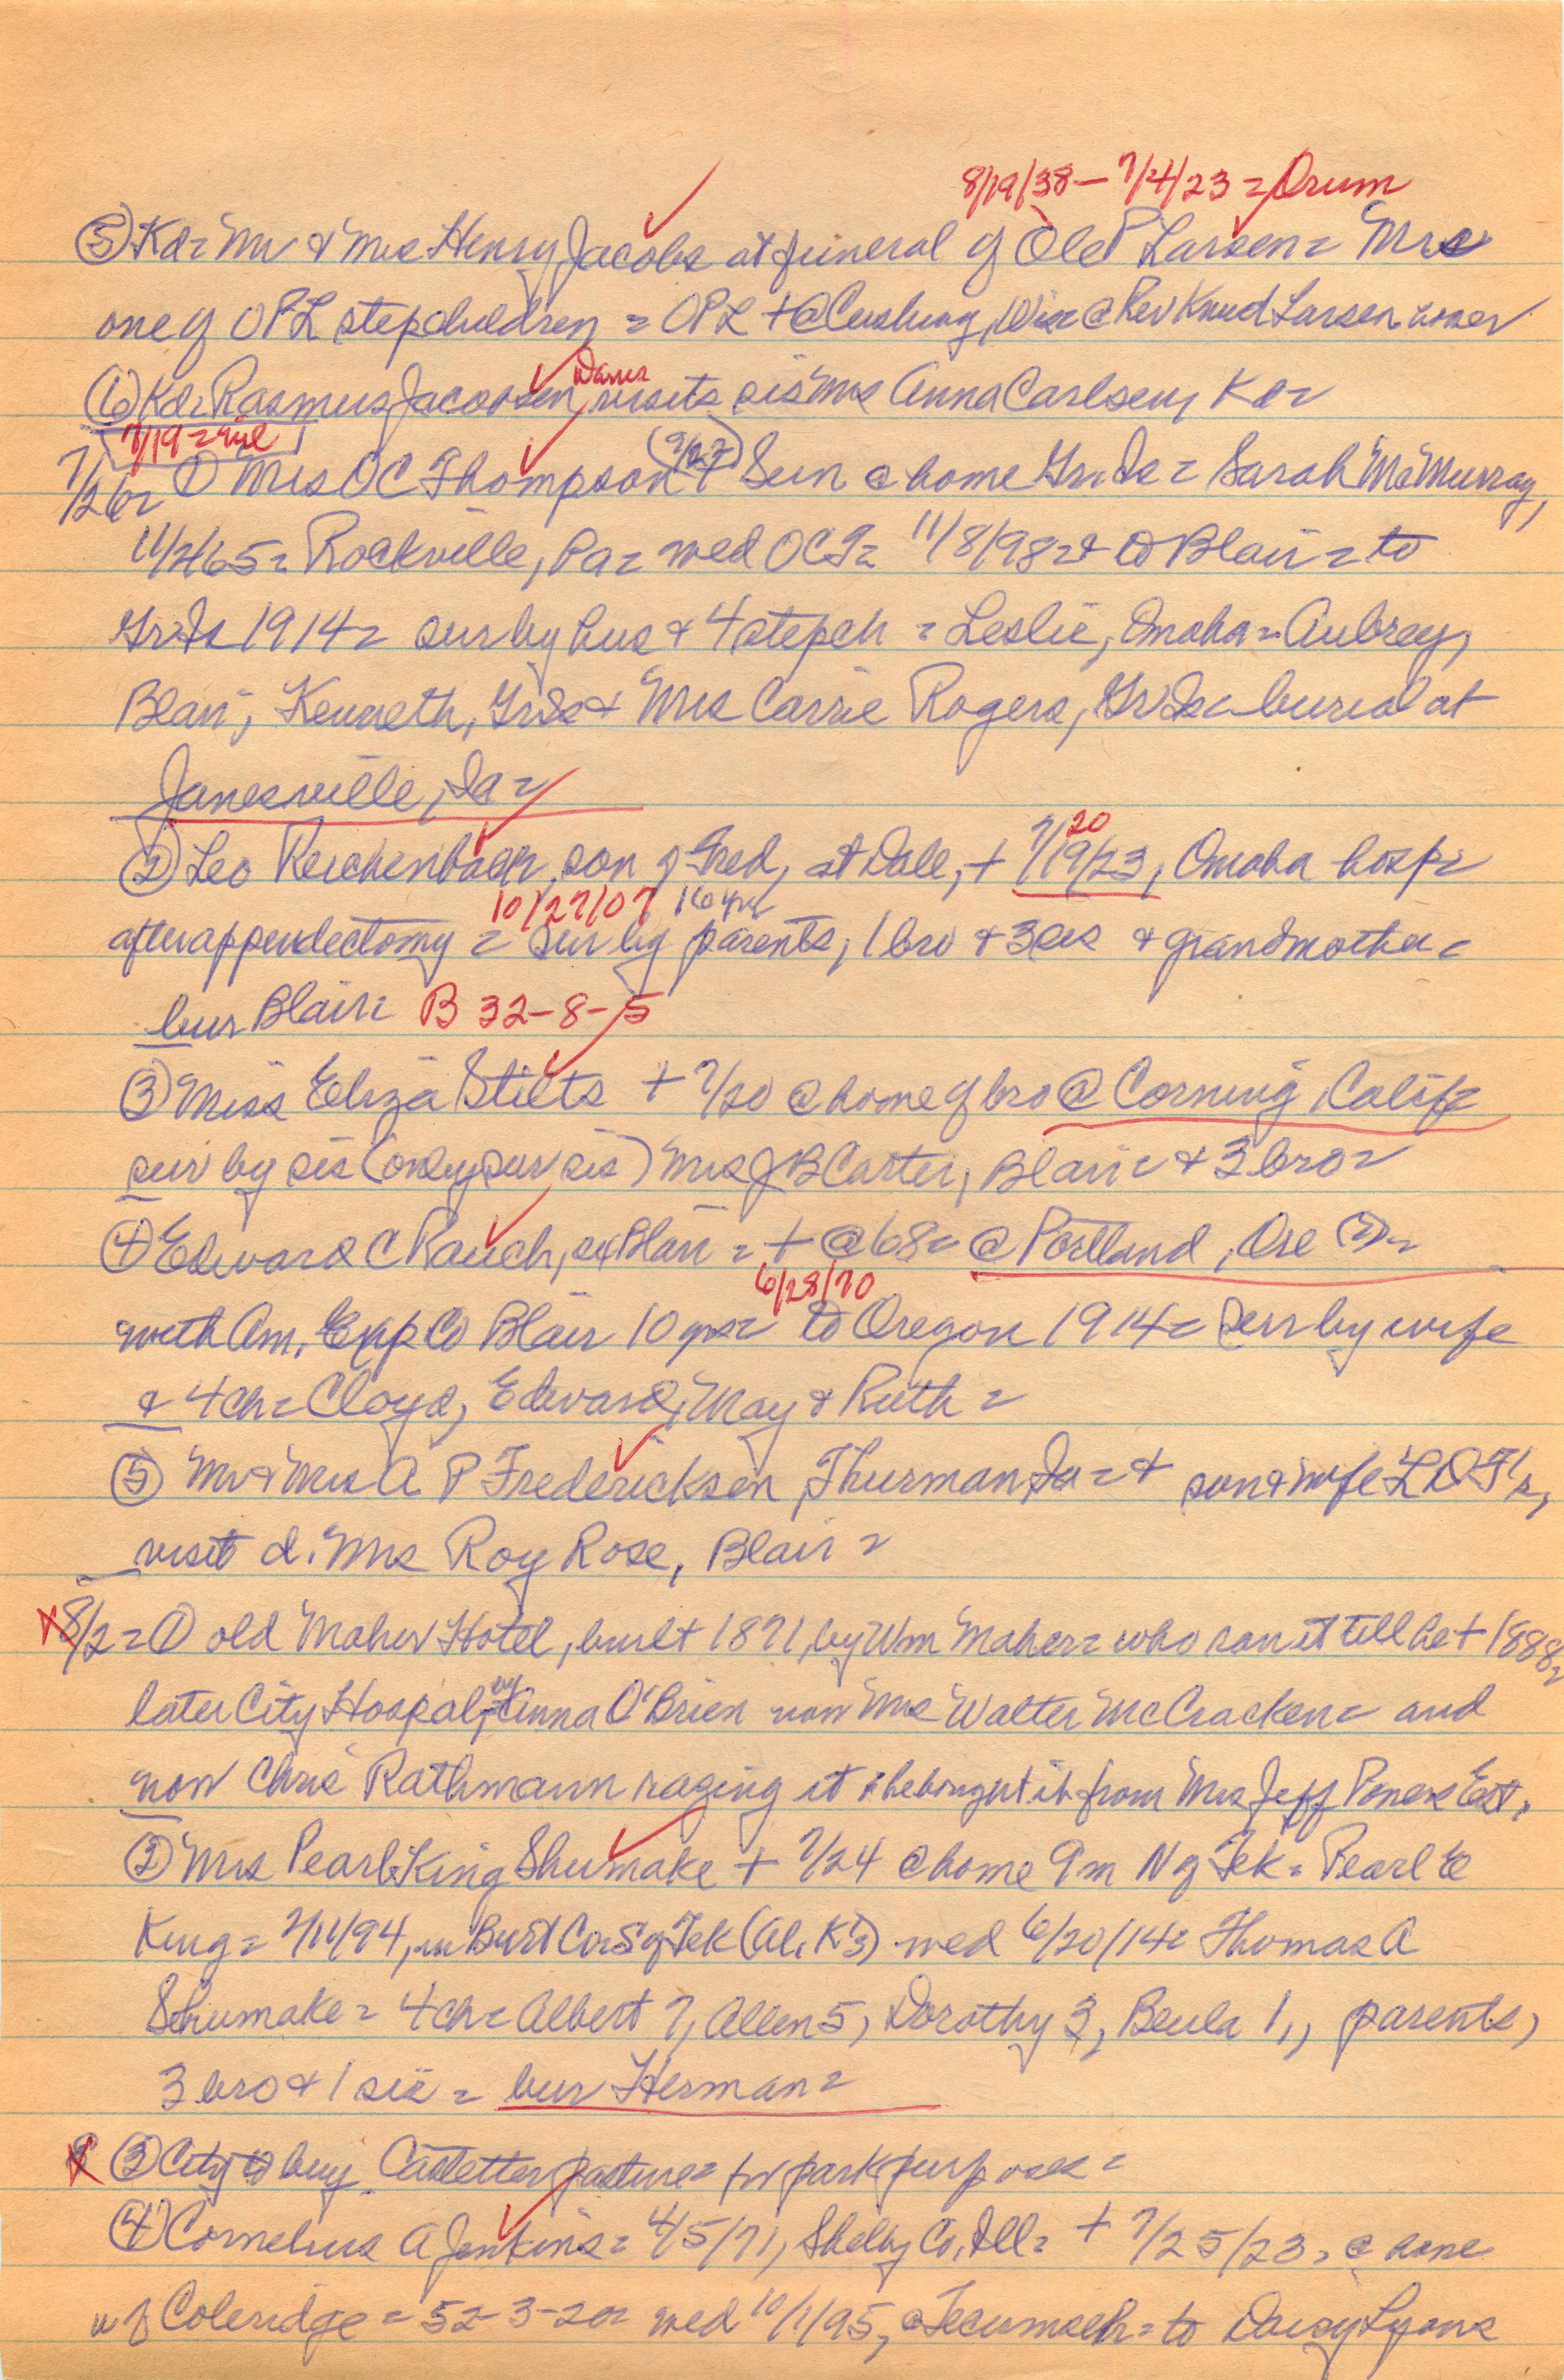 8/19/38 – 7/4/23 = Orum
⑤ Kd= Mr & Mrs Henry Jacobs at funeral of Ole P Larsen = Mrs
one of OPL stepchildren = OPL + @ Cushing, Wis @ Rev Knud Larsen home
⑥ Kd= Rasmus Jacobsen, visits sis Mrs Anna Carlsen, Kd=
7/19 =
7/26= ① Mrs OC Thompson + Sun @ home Gr. Is = Sarah McMurray,
11/2/65= Rockville, Pa= wed OCT= 11/8/98= & to Blair = to
Gr Is 1914= sur by hus & 4 stepch = Leslie, Omaha = Aubrey,
Blair, Kenneth, Gr Is & Mrs Carrie Rogers, Gr Is = burial at
Janesville, Ia=
② Leo Reichenbach, son of Fred, at Dale, + 7/19/23, Omaha hosp=
20
10/27/07 16 yrs
after appendectomy = sur by parents, 1 bro & 3 sis & grandmother =
bur Blair= B 32-8-5
③ Miss Eliza Stilts + 7/20 @ home of bro @ Corning, Calif=
sur by sis (only sur sis) Mrs J B Carter, Blair= & 3 bro=
④ Edward C Rauch, ex Blair = + @ 68= @ Portland, Ore (?)=
6/28/70
with Am. Exp Co Blair 10 yrs= to Oregon 1914= Sur by wife
& 4 ch= Cloyd, Edward, May & Ruth =
⑤ Mr & Mrs A P Fredericksen, Thurman, Ia = & son & wife
visit d. Mrs Roy Rose, Blair =
8/2 = ① old Maher Hotel, built 1871, by Wm Maher= who ran it till he + 1888=
later City Hospal, by Anna O'Brien now Mrs Walter McCracken= and
now Chris Rathmann razing it & he bought it from Mrs Jeff Powers Est.
② Mrs Pearl King Shumake + 7/24 @ home 9 m N of Tek = Pearl E
King = 7/11/94, in Burt Co= S of Tek (Al. K's) wed 6/20/14= Thomas A
Shumake = 4 ch= Albert 7, Allen 5, Dorothy 3, Beula 1,, parents,
3 bro & 1 sis = bur Herman=
③ City to buy Castetter pasture= for park purposes =
④ Cornelius A Jenkins = 4/5/71, Shelby Co, Ill= + 7/25/23, @ home
w of Coleridge = 52-3-20= wed 10/1/95, @ Tecumseh= to Daisy Lyons